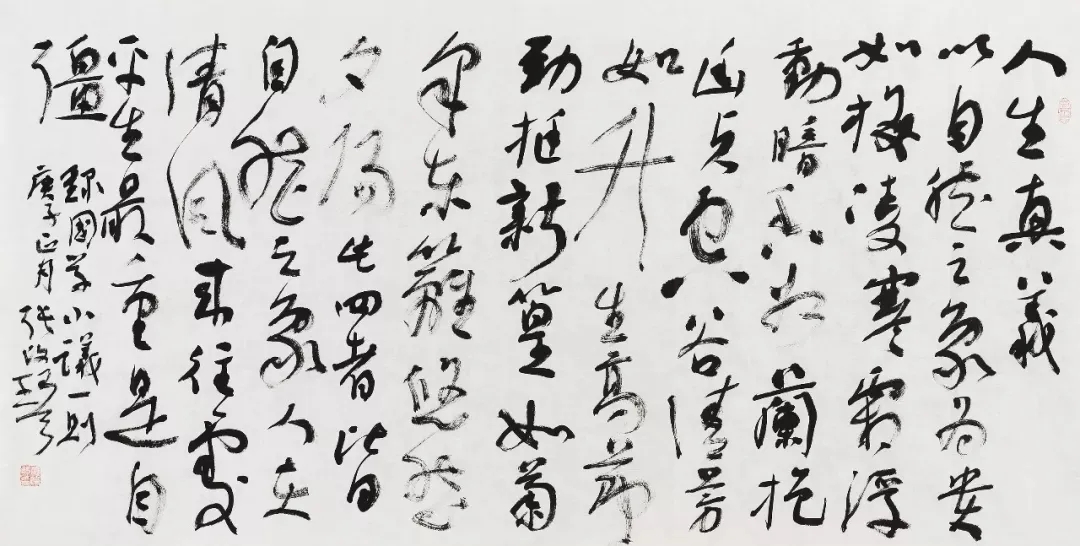 人生真義
以自然之象為貴
如梅凌寒霜浮
動暗香如蘭抱
幽貞空谷清芳
如竹生高節
勁挺新篁如菊
采東籬悠然
夕陽此四者皆曰
自然之象人在
清風來往處
平生最重是自
彊
錄國學小議一則
庚子正月張改琴